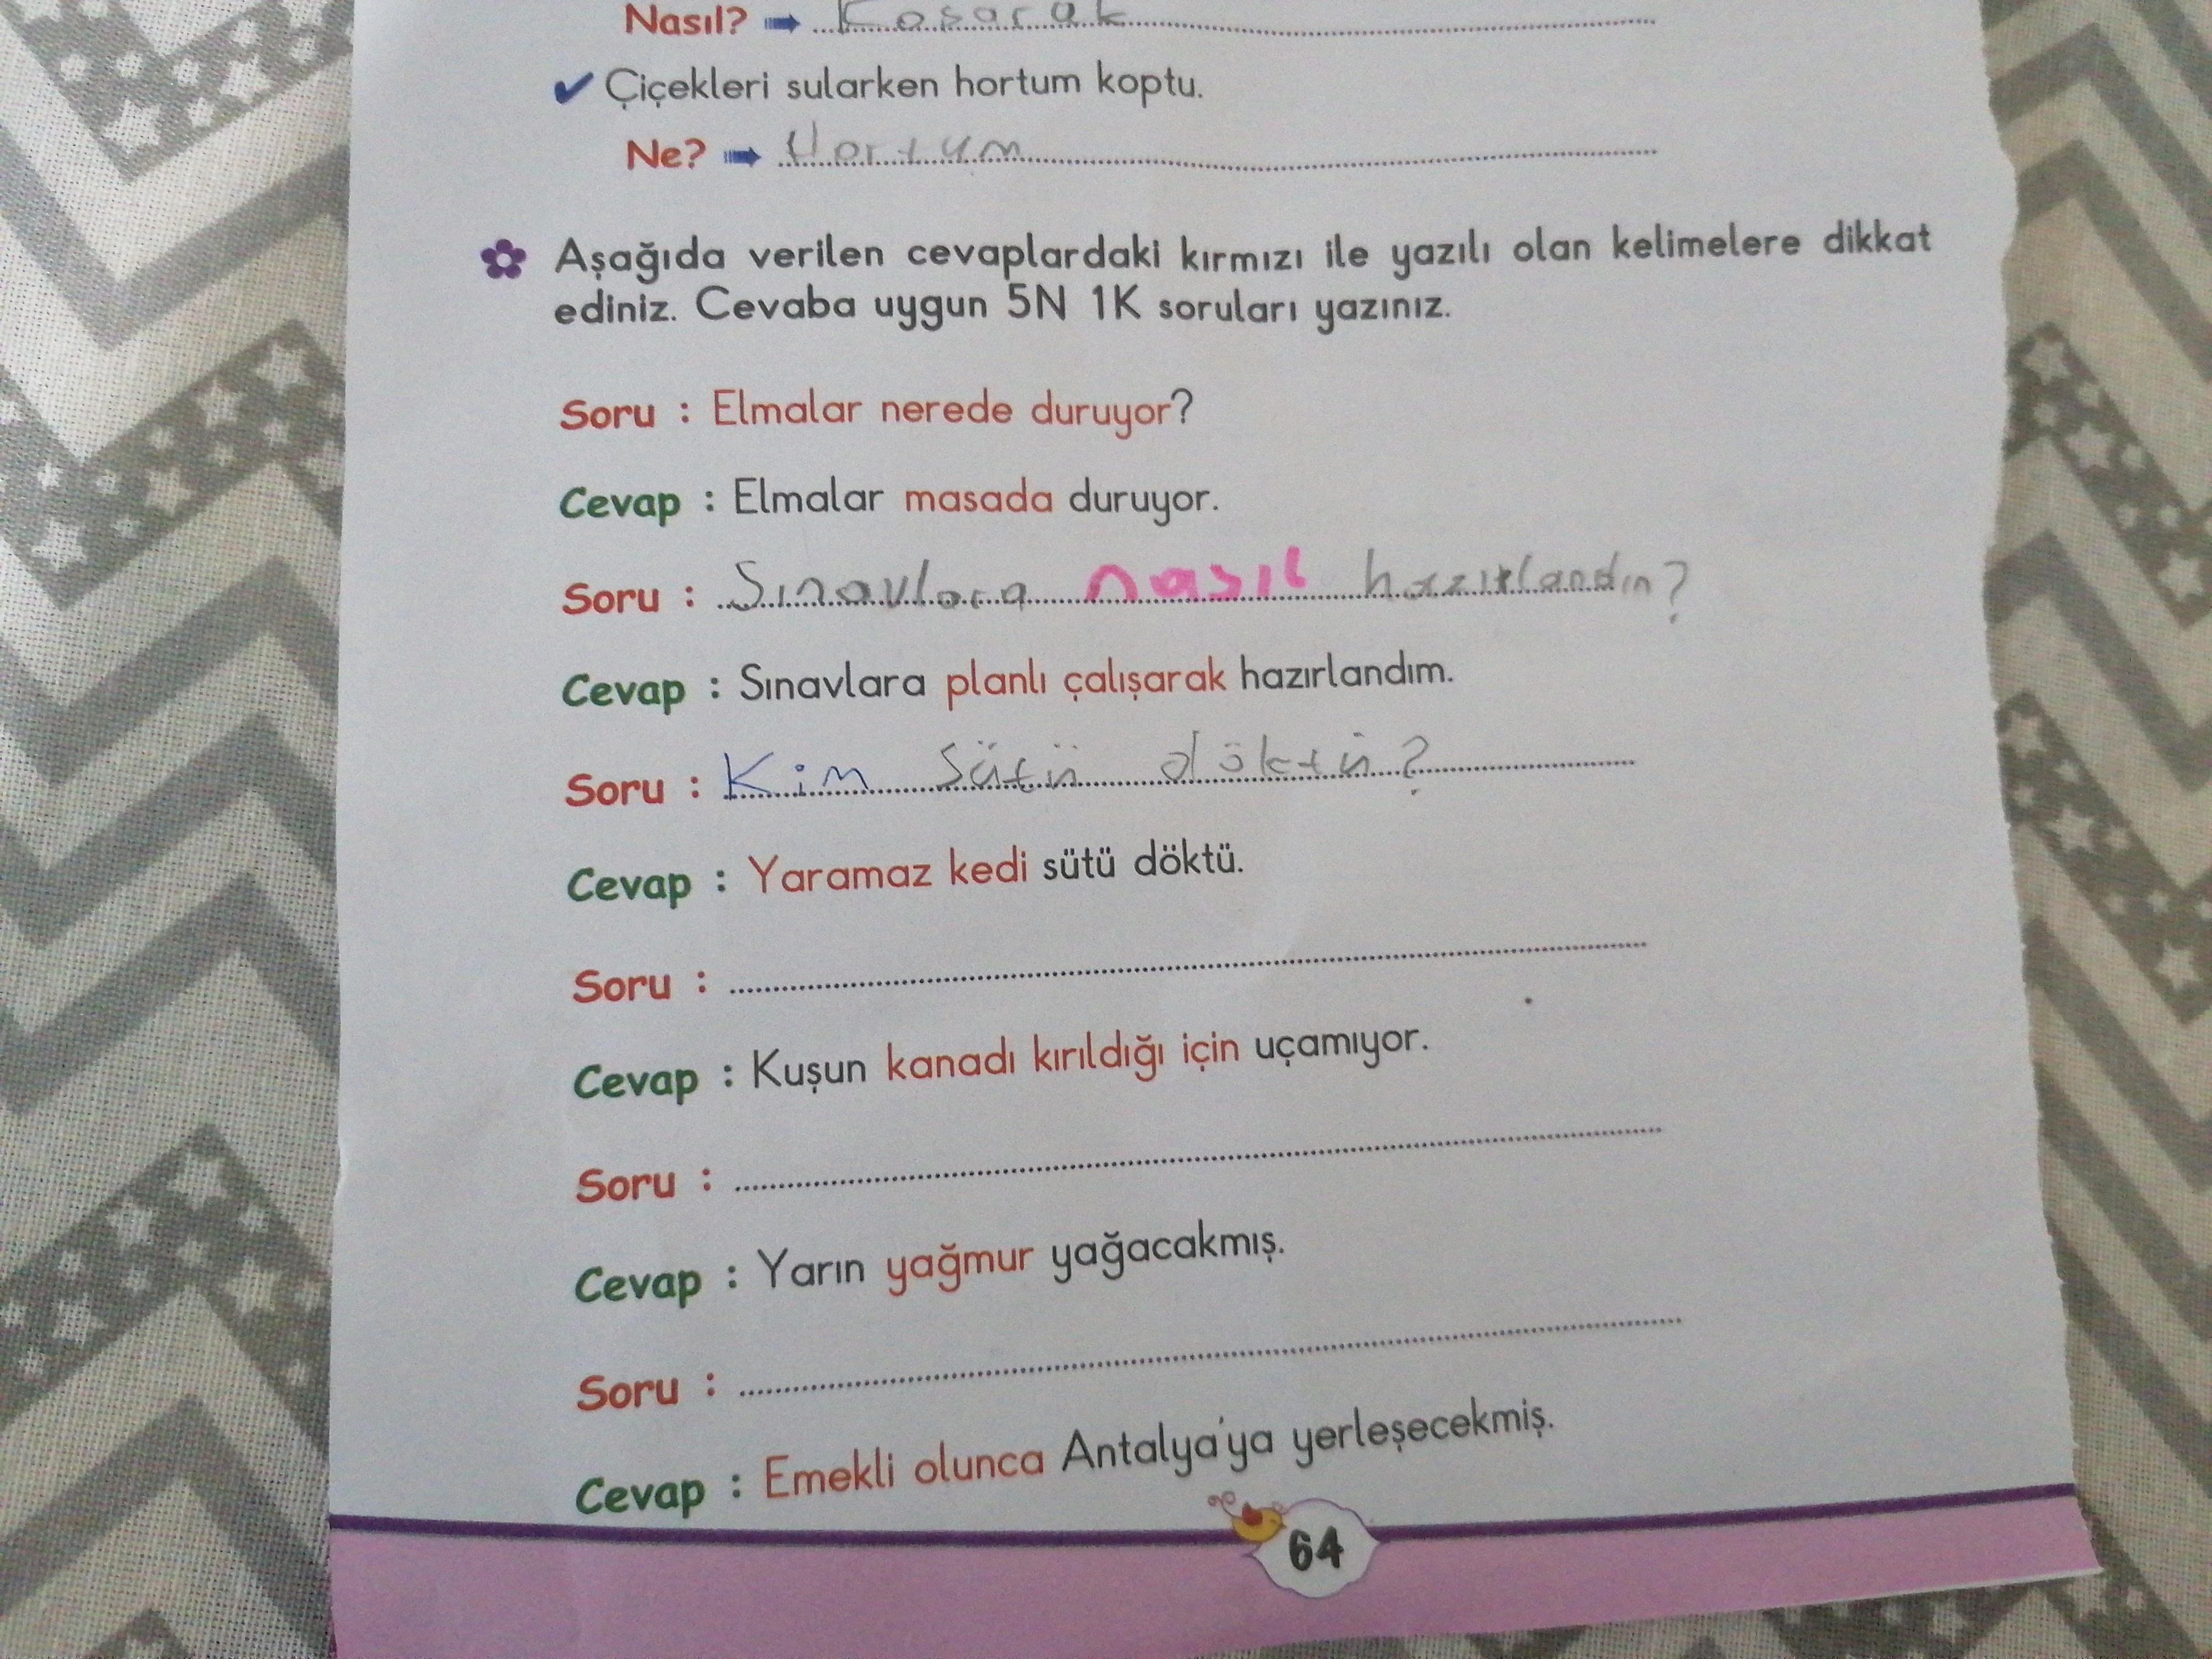 Nasıl? Koşarak
Çiçekleri sularken hortum koptu.
Ne? Hortum
Aşağıda verilen cevaplardaki kırmızı ile yazılı olan kelimelere dikkat
ediniz. Cevaba uygun 5N 1K soruları yazınız.
Soru : Elmalar nerede duruyor?
Cevap : Elmalar masada duruyor.
Soru : Sınavlara nasıl hazırlandın?
Cevap : Sınavlara planlı çalışarak hazırlandım.
Soru : Kim sütü döktü?
Cevap : Yaramaz kedi sütü döktü.
Soru :
Cevap : Kuşun kanadı kırıldığı için uçamıyor.
Soru :
Cevap : Yarın yağmur yağacakmış.
Soru :
Cevap : Emekli olunca Antalya'ya yerleşecekmiş.
64